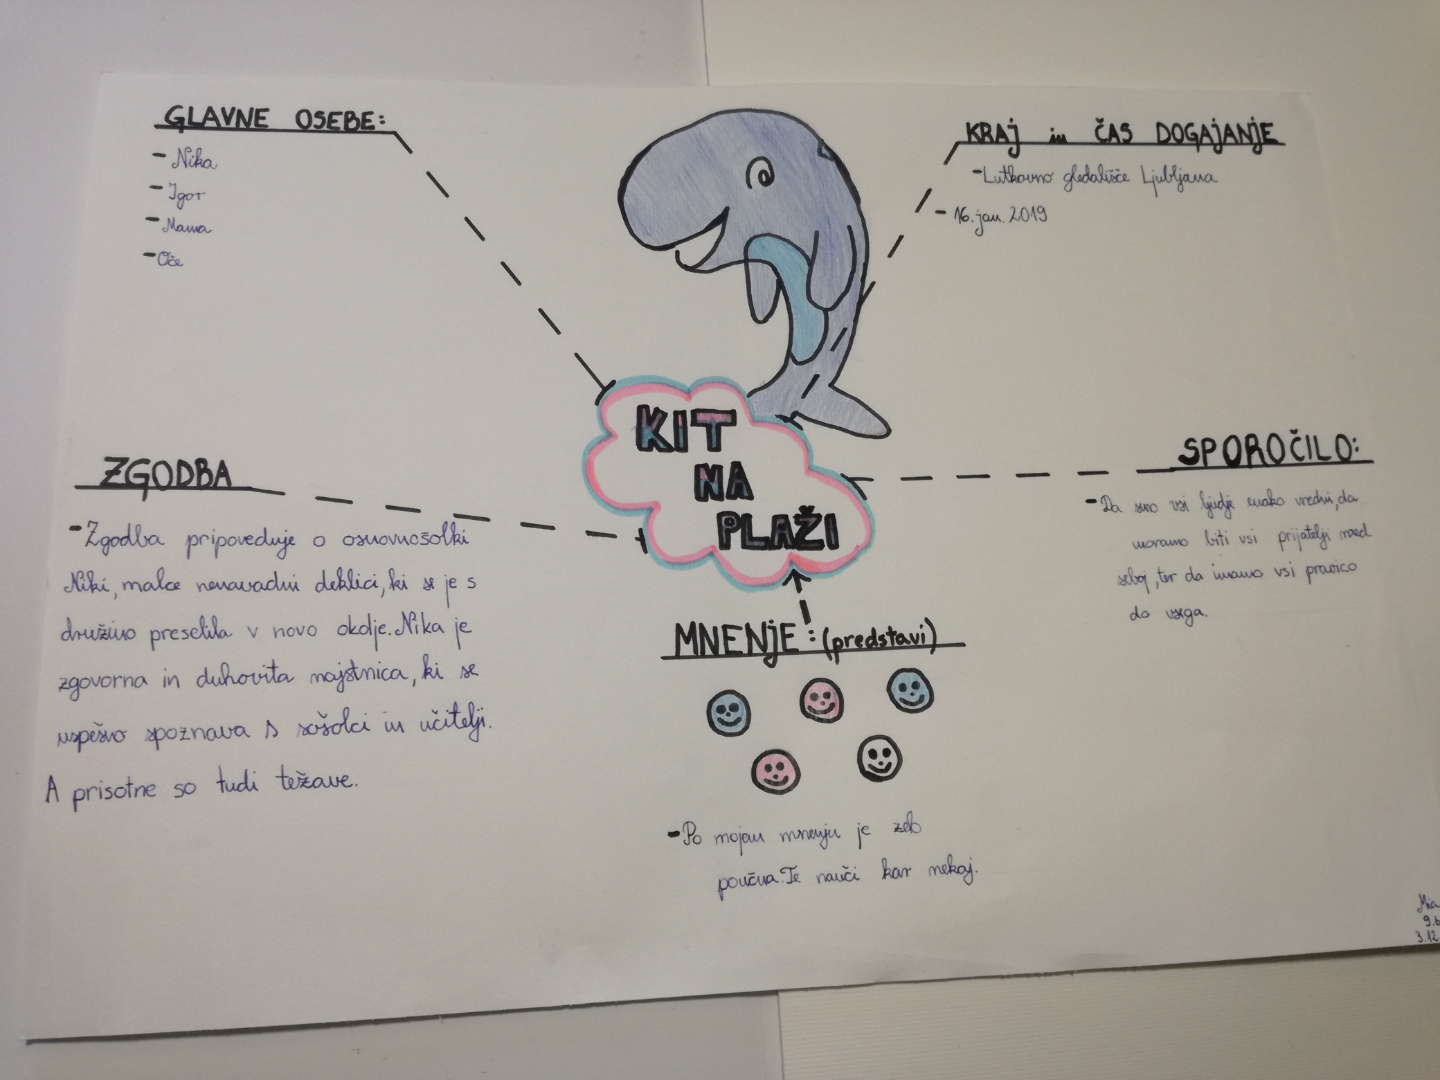 GLAVNE OSEBE:
- Nika
- Igor
- Mama
- Oče
KRAJ in ČAS DOGAJANJE
- Lutkovno gledališče Ljubljana
- 16. jan. 2019
KIT
NA
PLAŽI
ZGODBA
- Zgodba pripoveduje o osnovnošolki
Niki, malce nenavadni deklici, ki se je s
družino preselila v novo okolje. Nika je
zgovorna in duhovita najstnica, ki se
uspešno spoznava s sošolci in učitelji.
A prisotne so tudi težave.
SPOROČILO:
- Da smo vsi ljudje enako vredni, da
moramo biti vsi prijatelji med
seboj, ter da imamo vsi pravico
do vsega.
MNENJE: (predstavi)
- Po mojem mnenju je zelo
poučna. Te nauči kar nekaj.
Mia
9.b
3.12